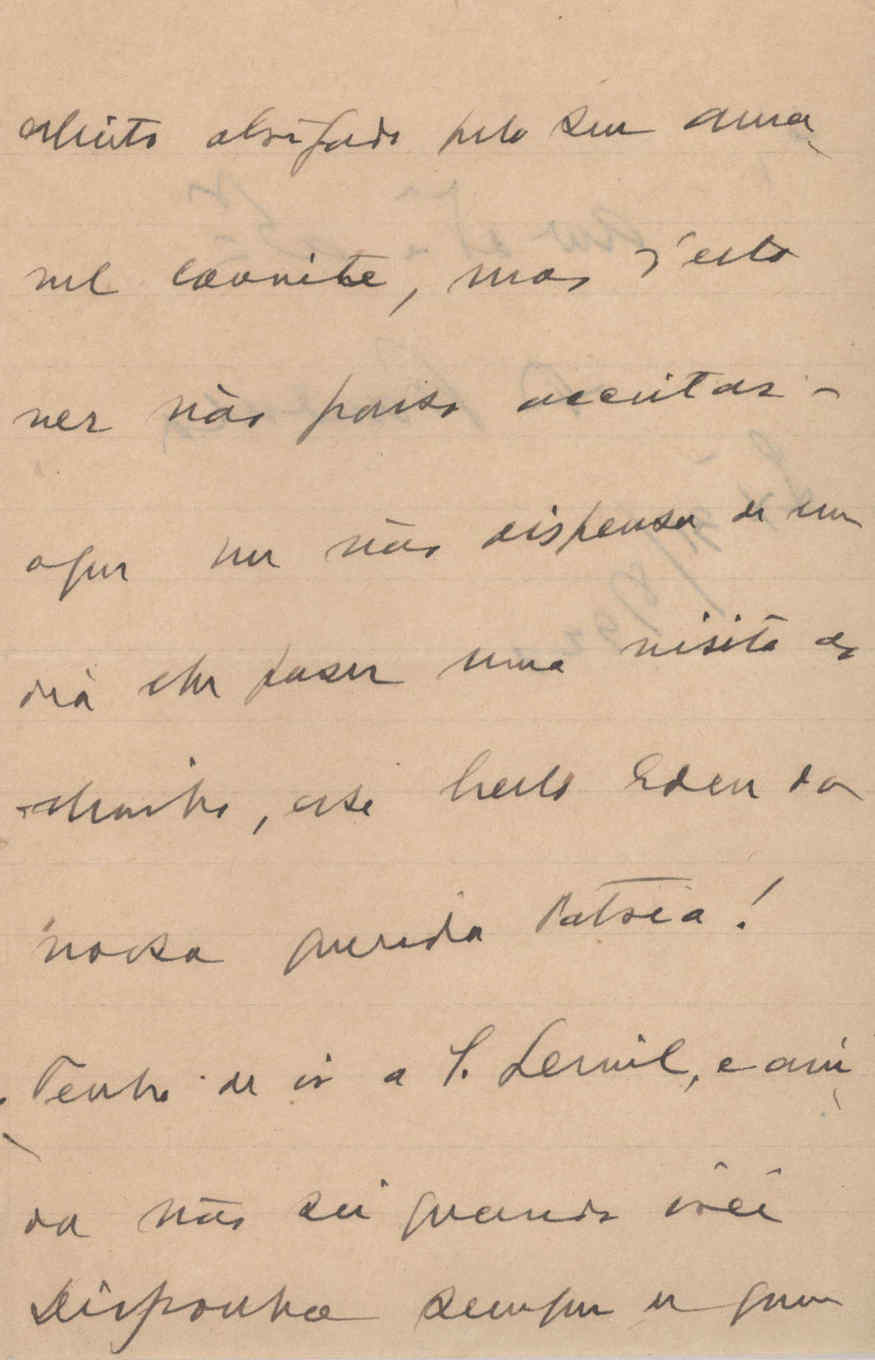 Muito obrigado pelo seu ama
vel convite, mas d'esta
vez não posso acceitar -
o que me não dispensa de um
dia lhe fazer uma visita ao
Minho, esse bello Eden da
nossa querida Patria!
Tenho de ir a S. , e ain
da não sei quando irei
Disponha sempre de quem